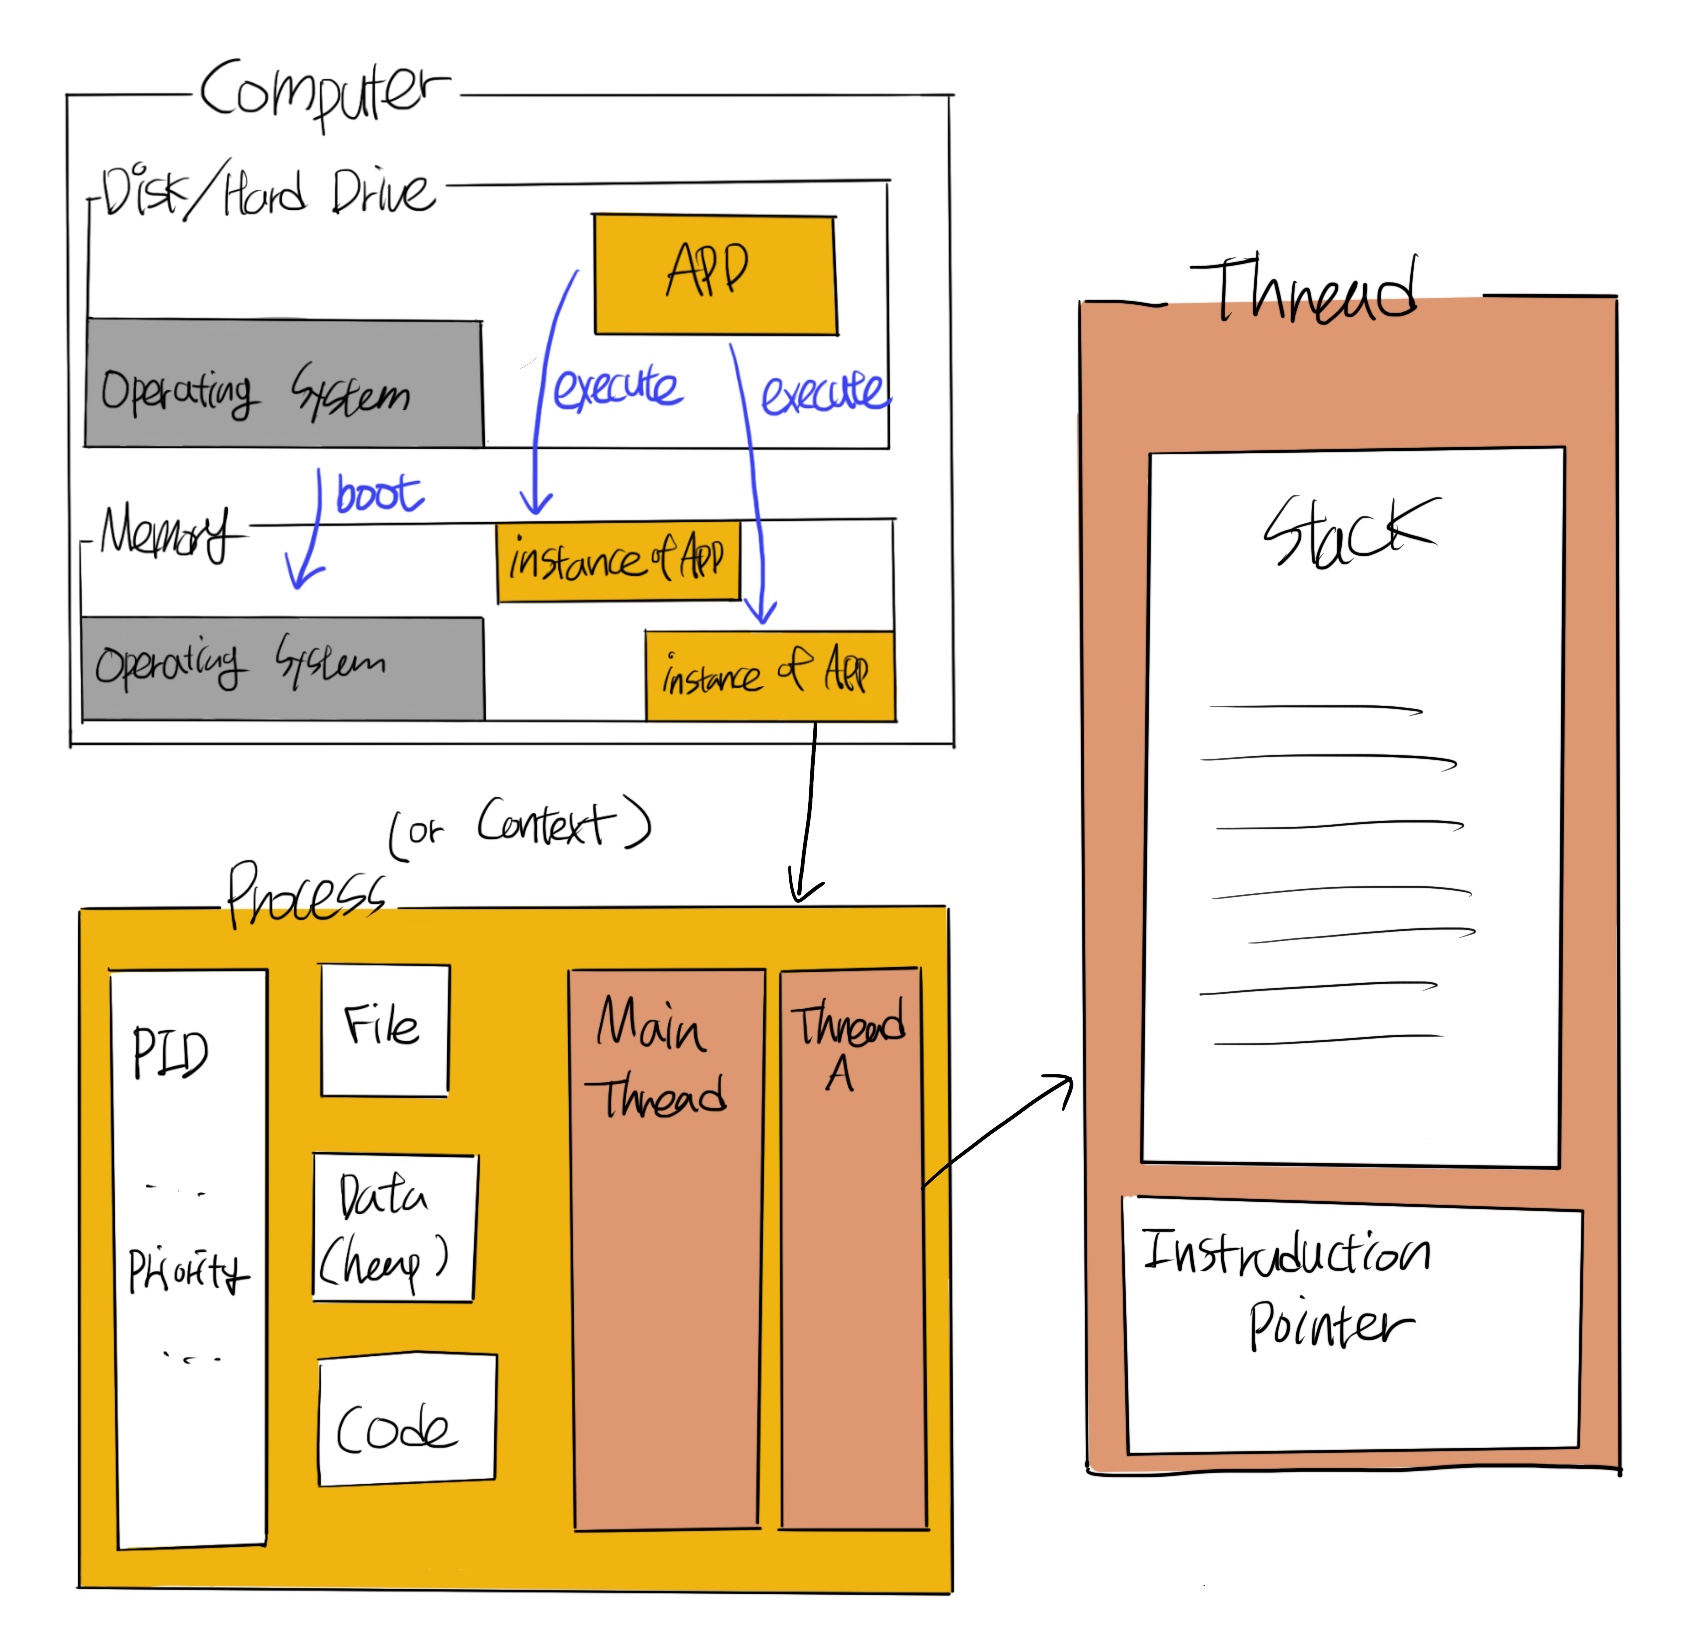 Computer
Disk/Hard Drive
APP
Operating System
execute
execute
boot
Memory
instance of App
Operating System
instance of App
(or Context)
Process
PID
...
Priority
...
File
Data
(heap)
Code
Main
Thread
Thread
A
Thread
Stack
Instruduction
Pointer